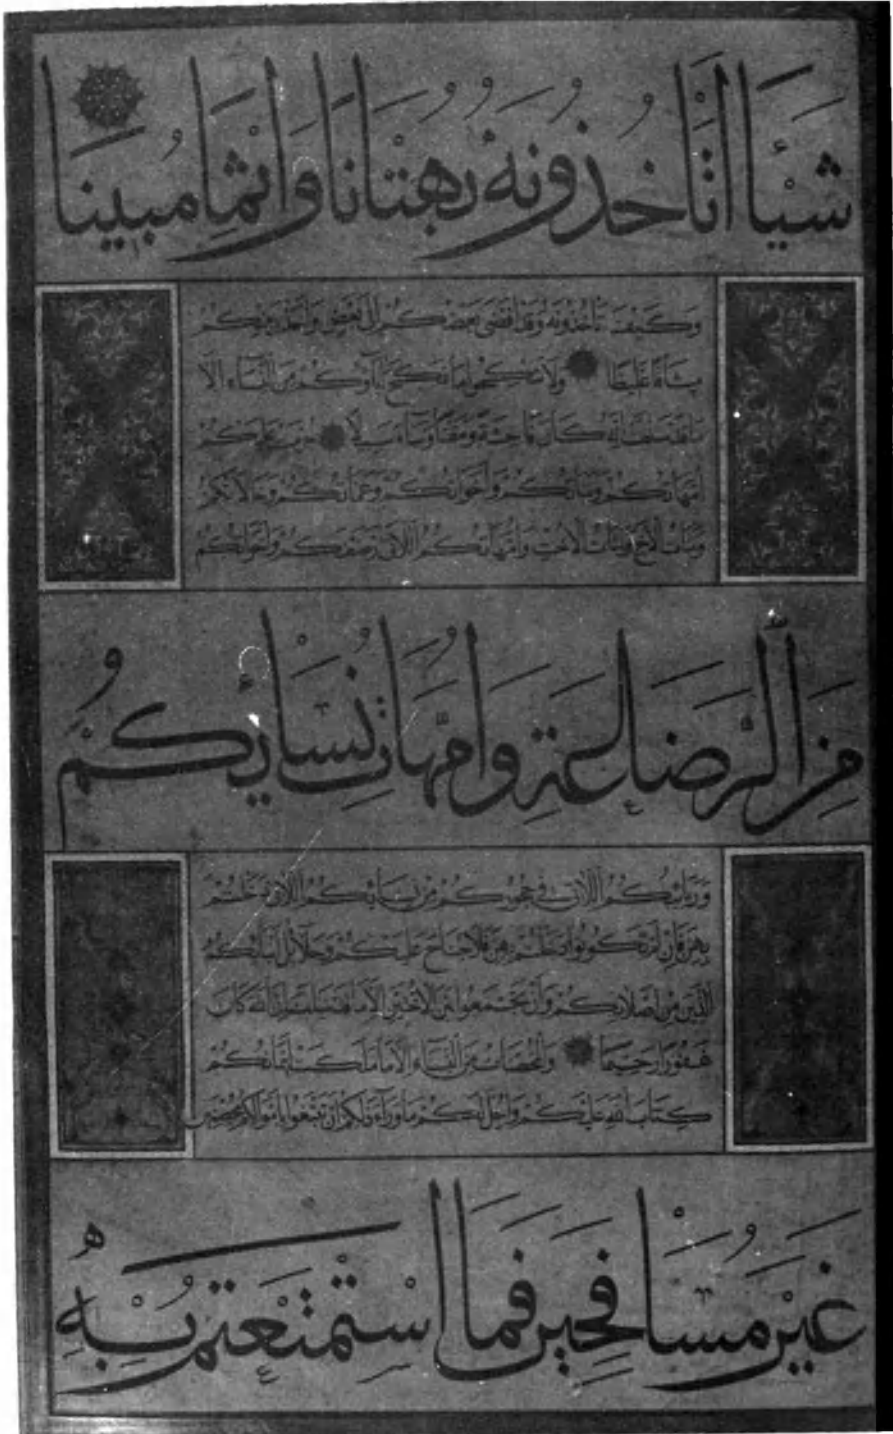 شَيْئًا أَتَأْخُذُونَهُ بُهْتَانًا وَإِثْمًا مُبِينًا
وَكَيْفَ تَأْخُذُونَهُ وَقَدْ أَفْضَى بَعْضُكُمْ إِلَى بَعْضٍ وَأَخَذْنَ مِنْكُمْ
مِيثَاقًا غَلِيظًا وَلَا تَنْكِحُوا مَا نَكَحَ آبَاؤُكُمْ مِنَ النِّسَاءِ إِلَّا
مَا قَدْ سَلَفَ إِنَّهُ كَانَ فَاحِشَةً وَمَقْتًا وَسَاءَ سَبِيلًا حُرِّمَتْ عَلَيْكُمْ
أُمَّهَاتُكُمْ وَبَنَاتُكُمْ وَأَخَوَاتُكُمْ وَعَمَّاتُكُمْ وَخَالَاتُكُمْ
وَبَنَاتُ الْأَخِ وَبَنَاتُ الْأُخْتِ وَأُمَّهَاتُكُمُ اللَّاتِي أَرْضَعْنَكُمْ وَأَخَوَاتُكُمْ
مِنَ الرَّضَاعَةِ وَأُمَّهَاتُ نِسَائِكُمْ
وَرَبَائِبُكُمُ اللَّاتِي فِي حُجُورِكُمْ مِنْ نِسَائِكُمُ اللَّاتِي دَخَلْتُمْ
بِهِنَّ فَإِنْ لَمْ تَكُونُوا دَخَلْتُمْ بِهِنَّ فَلَا جُنَاحَ عَلَيْكُمْ وَحَلَائِلُ أَبْنَائِكُمُ
الَّذِينَ مِنْ أَصْلَابِكُمْ وَأَنْ تَجْمَعُوا بَيْنَ الْأُخْتَيْنِ إِلَّا مَا قَدْ سَلَفَ إِنَّ اللَّهَ كَانَ
غَفُورًا رَحِيمًا وَالْمُحْصَنَاتُ مِنَ النِّسَاءِ إِلَّا مَا مَلَكَتْ أَيْمَانُكُمْ
كِتَابَ اللَّهِ عَلَيْكُمْ وَأُحِلَّ لَكُمْ مَا وَرَاءَ ذَلِكُمْ أَنْ تَبْتَغُوا بِأَمْوَالِكُمْ مُحْصِنِينَ
غَيْرَ مُسَافِحِينَ فَمَا اسْتَمْتَعْتُمْ بِهِ